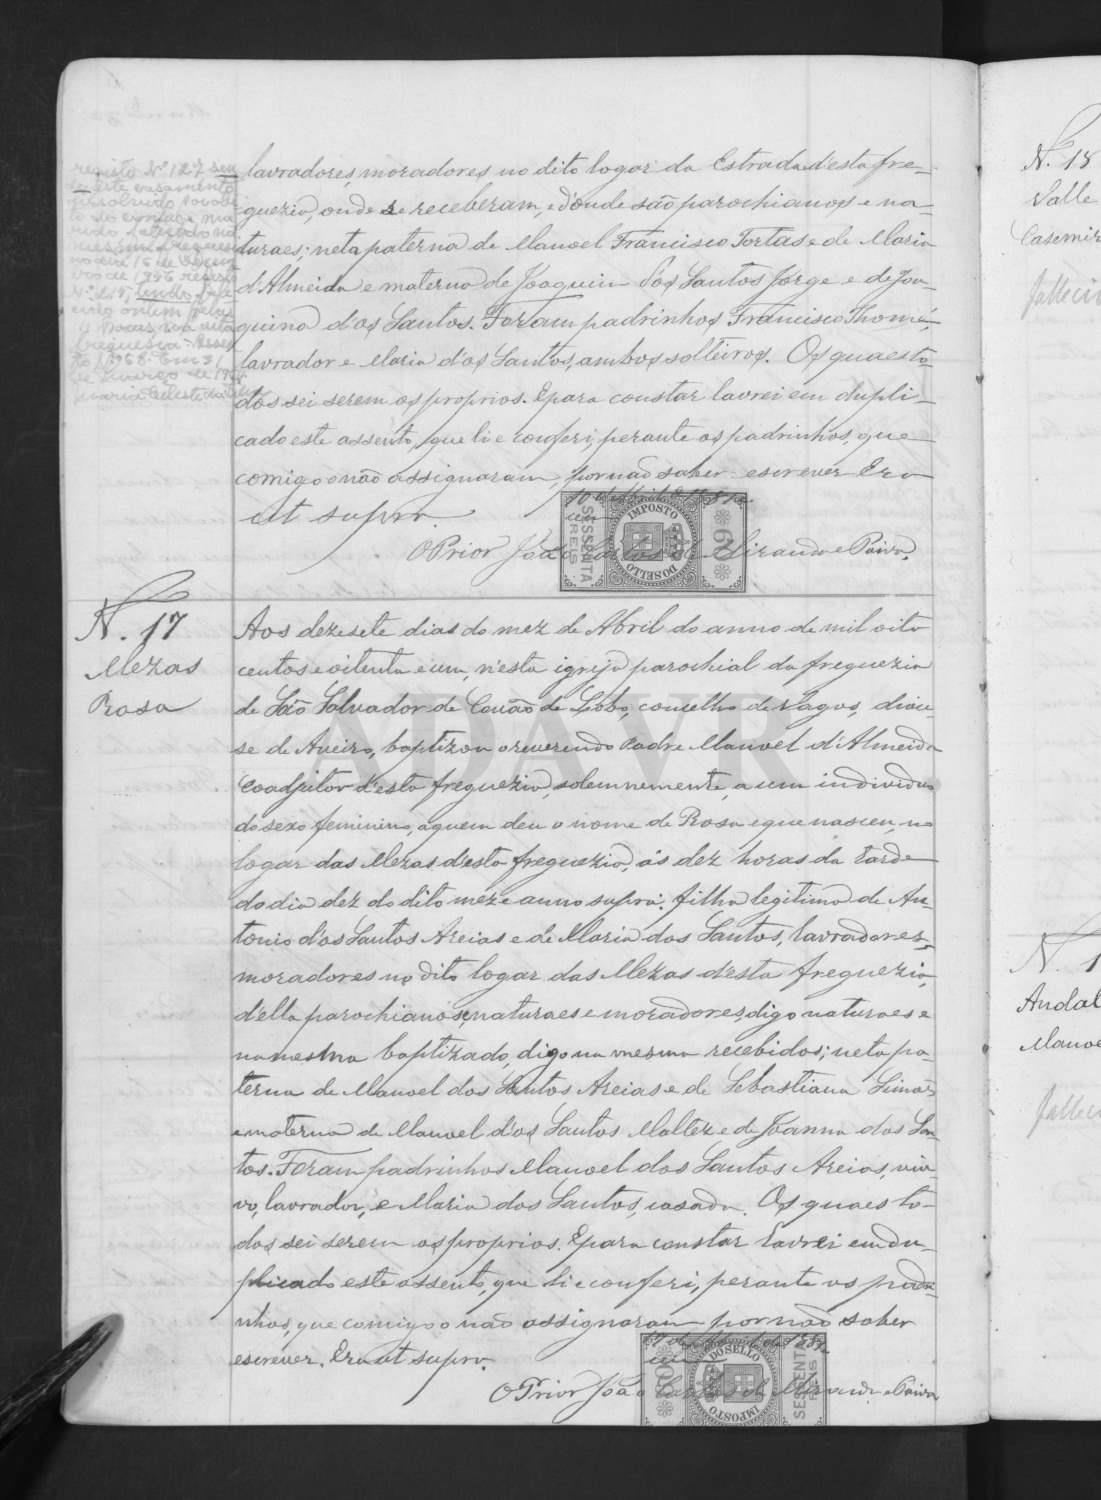 registo Nº 127
lavradores, moradores no dito logar da Estrada d'esta fre-
guezia, onde se receberam, e d'onde são parochianos e na-
turaes; neta paterna de Manoel Francisco Tortas e de Maria
d'Almeida e materna de Joaquim dos Santos Jorge e de Joa-
quina d'os Santos. Foram padrinhos Francisco Thomé,
lavrador e Maria d'os Santos, ambos solteiros. Os quaes to-
dos sei serem os proprios. E para constar lavrei em dupli-
cado este assento, que li e conferi, perante os padrinhos, que
comigo não assignaram, por não saber escrever Era
ut supra.
O Prior João de Miranda e Paiva.
IMPOSTO DO SELLO
SESSENTA REIS
60
N. 17
Mezas
Rosa
Aos dezesete dias do mez de Abril do anno de mil oito
centos e oitenta e um, n'esta igreja parochial da freguezia
de São Salvador de Covão de Lobo, concelho de Vagos, dioce-
se de Aveiro, baptizou o reverendo Padre Manoel d'Almeida
Coadjitor d'esta freguezia, solemnemente, a um individuo
do sexo feminino, a quem deu o nome de Rosa e que nasceu, no
logar das Mezas d'esta freguezia, ás dez horas da tarde
do dia dez do dito mez e anno supra: filha legitima de An-
tonio d'os Santos Areias e de Maria dos Santos, lavradores,
moradores no dito logar das Mezas d'esta freguezia,
d'ella parochianos, naturaes e moradores, digo naturaes e
na mesma baptizado, digo na mesma recebidos; neta pa-
terna de Manoel dos Santos Areias e de Sebastiana Simões
e materna de Manoel d'os Santos Maltez e de Joanna dos San-
tos. Foram padrinhos Manoel dos Santos Areias, viu-
vo, lavrador, e Maria dos Santos, casada. Os quaes to-
dos sei serem os proprios. E para constar lavrei em du-
plicado este assento, que li e conferi, perante os padri-
nhos, que comigo não assignaram por não saber
escrever. Era ut supra.
O Prior João de Miranda e Paiva
60
IMPOSTO DO SELLO
SESSENTA REIS
ADAVR
N. 18
Salle
Casemir
falleci
N. 1
Andal
Manoe
fallec